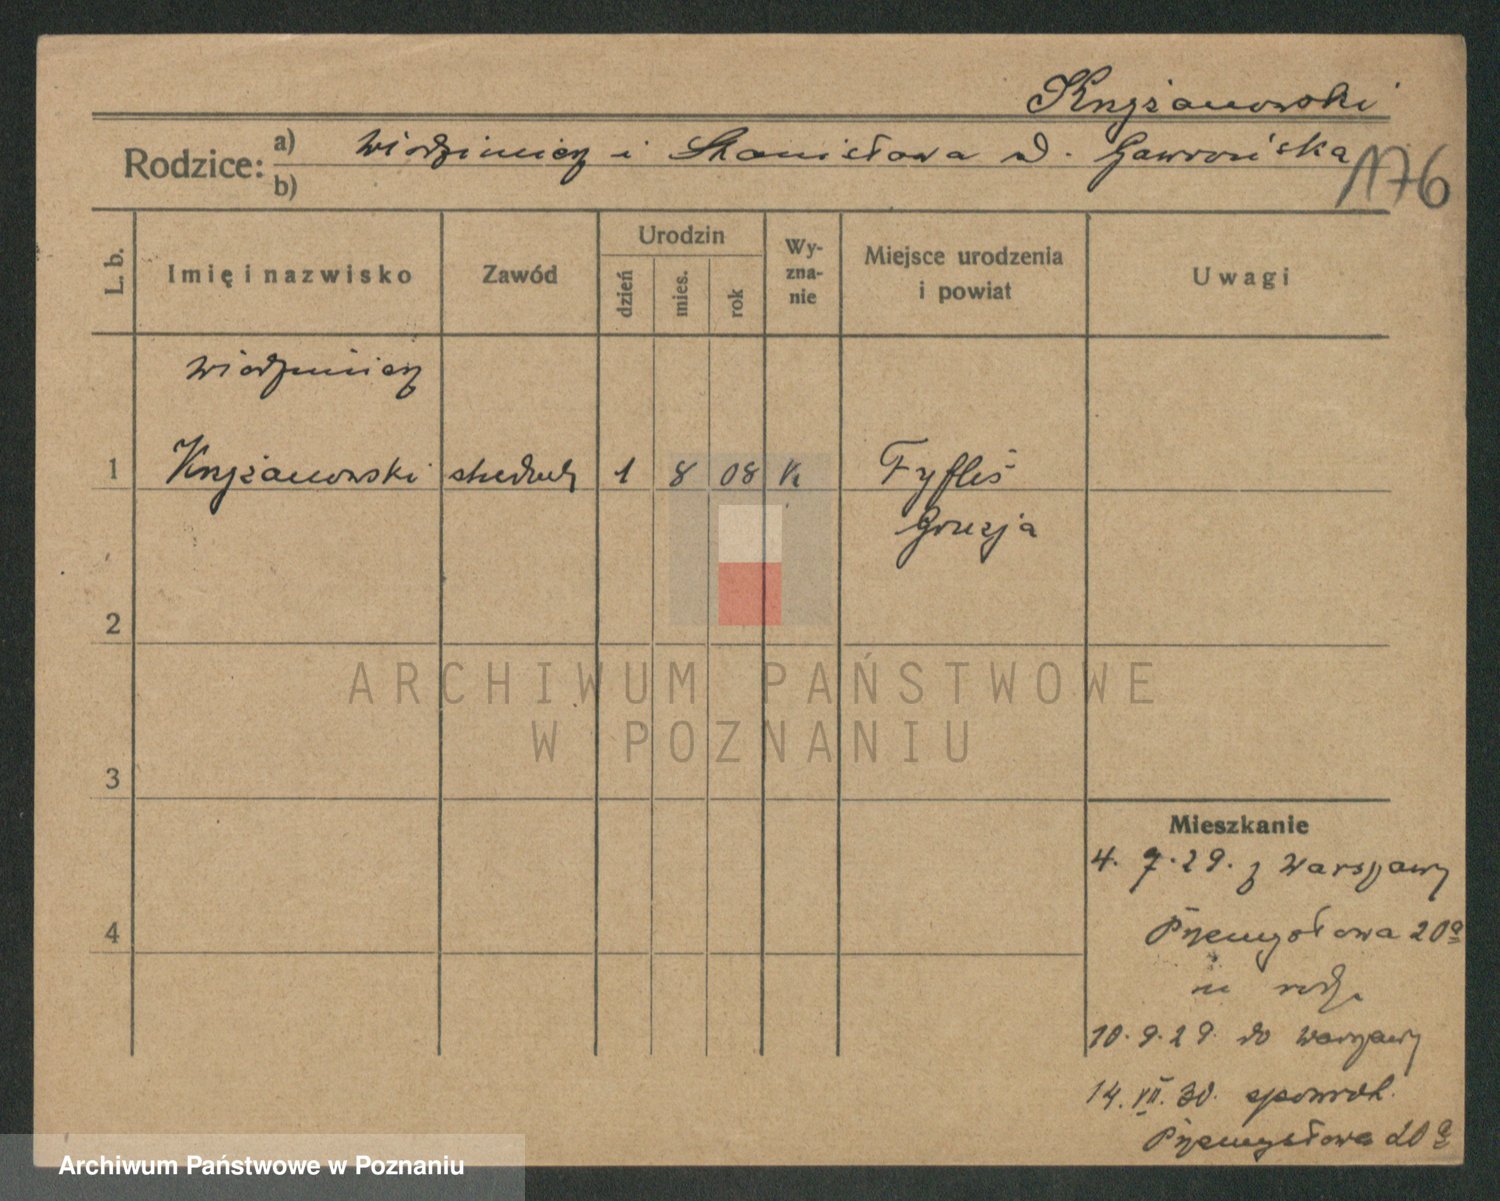 Krzyżanowski
Rodzice: a) Włodzimierz i Stanisława d. Gawrońska
b)
176
L. b.
Imię i nazwisko
Zawód
Urodzin
dzień
mies.
rok
Wy-
zna-
nie
Miejsce urodzenia
i powiat
Uwagi
Włodzimierz
1 Krzyżanowski student 1 8 08 k Tyflis
Gruzja
2
3
4
ARCHIWUM PAŃSTWOWE
W POZNANIU
Mieszkanie
4. 7. 29. z Warszawy
Przemysłowa 20a
u rodz.
10. 9. 29. do Warszawy
14. VII. 30. spowrot.
Przemysłowa 20a
Archiwum Państwowe w Poznaniu